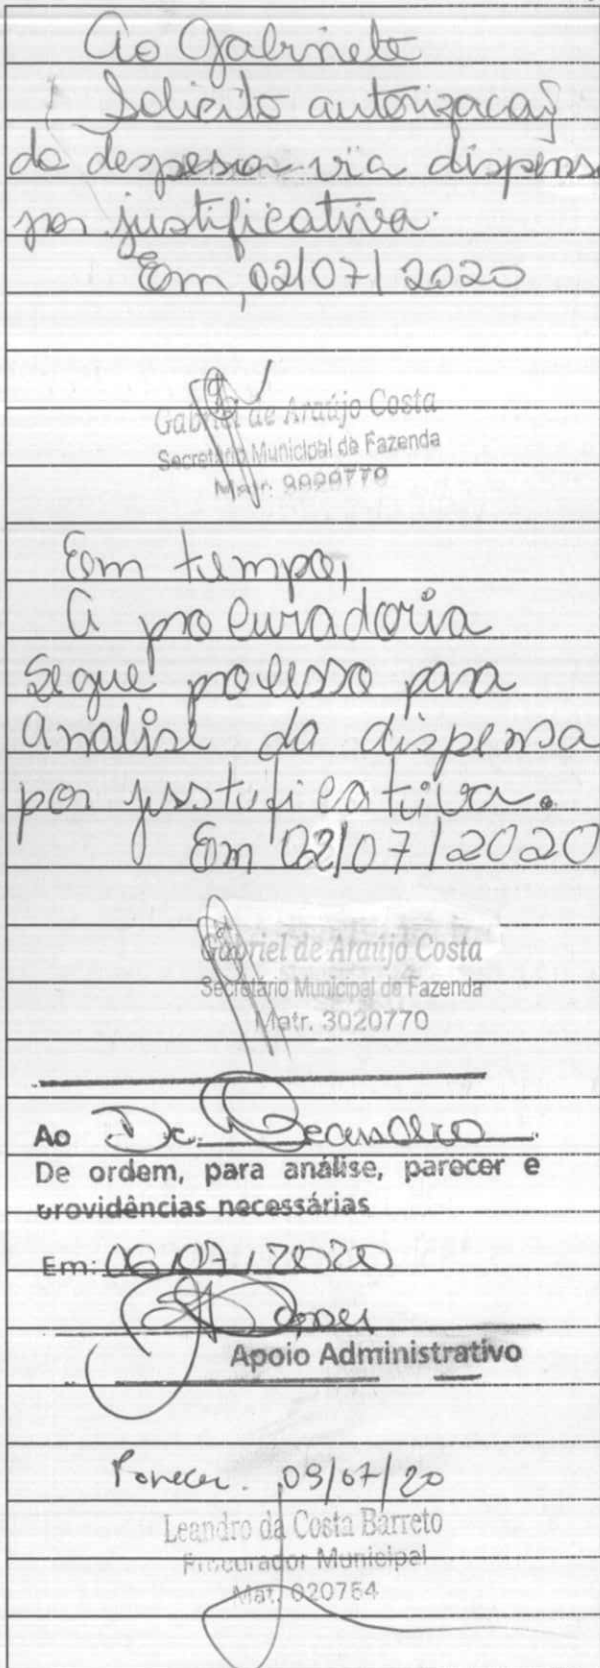 Ao Gabinete
Solicito autorização
da despesa via dispens
por justificativa.
Em, 02/07/2020
Gabriel de Araújo Costa
Secretário Municipal de Fazenda
Matr. 3020770
Em tempo,
A procuradoria
Segue processo para
analise da dispensa
por justificativa.
Em 02/07/2020
Gabriel de Araújo Costa
Secretário Municipal de Fazenda
Matr. 3020770
Ao Dr. Leandro
De ordem, para análise, parecer e
providências necessárias
Em: 06/07/2020
Apoio Administrativo
Parecer. 09/07/20
Leandro da Costa Barreto
Procurador Municipal
Mat. 020754